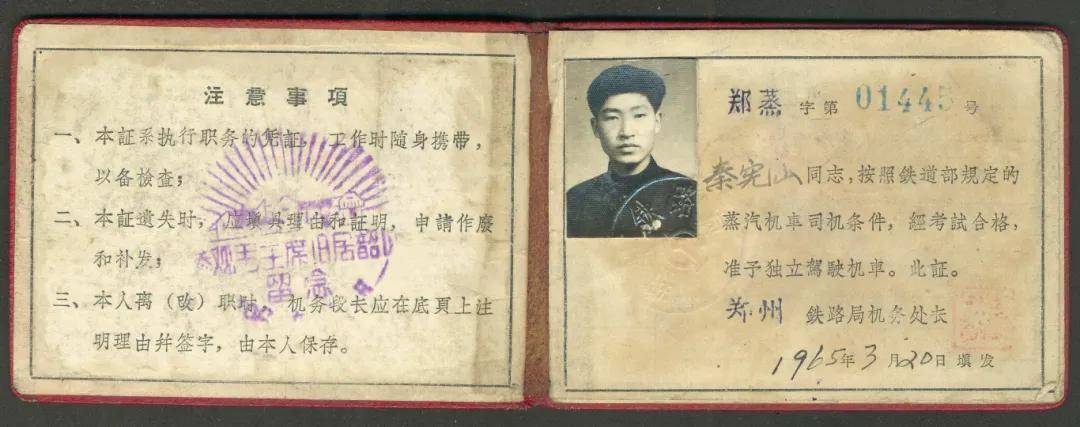 注意事項
一、本証系执行职务的凭証，工作时随身携带，
以备檢查；
二、本証遗失时，应填具理由和証明，申請作廢
和补发；
三、本人离（改）职时，机务段长应在底頁上注
明理由幷签字，由本人保存。
参观毛主席旧居韶山
留念
郑蒸字第01445号
秦宪山同志，按照鉄道部规定的
蒸汽机車司机条件，經考試合格，
准予独立駕駛机車。此証。
郑州 鉄路局机务处长
1965年3月20日填发